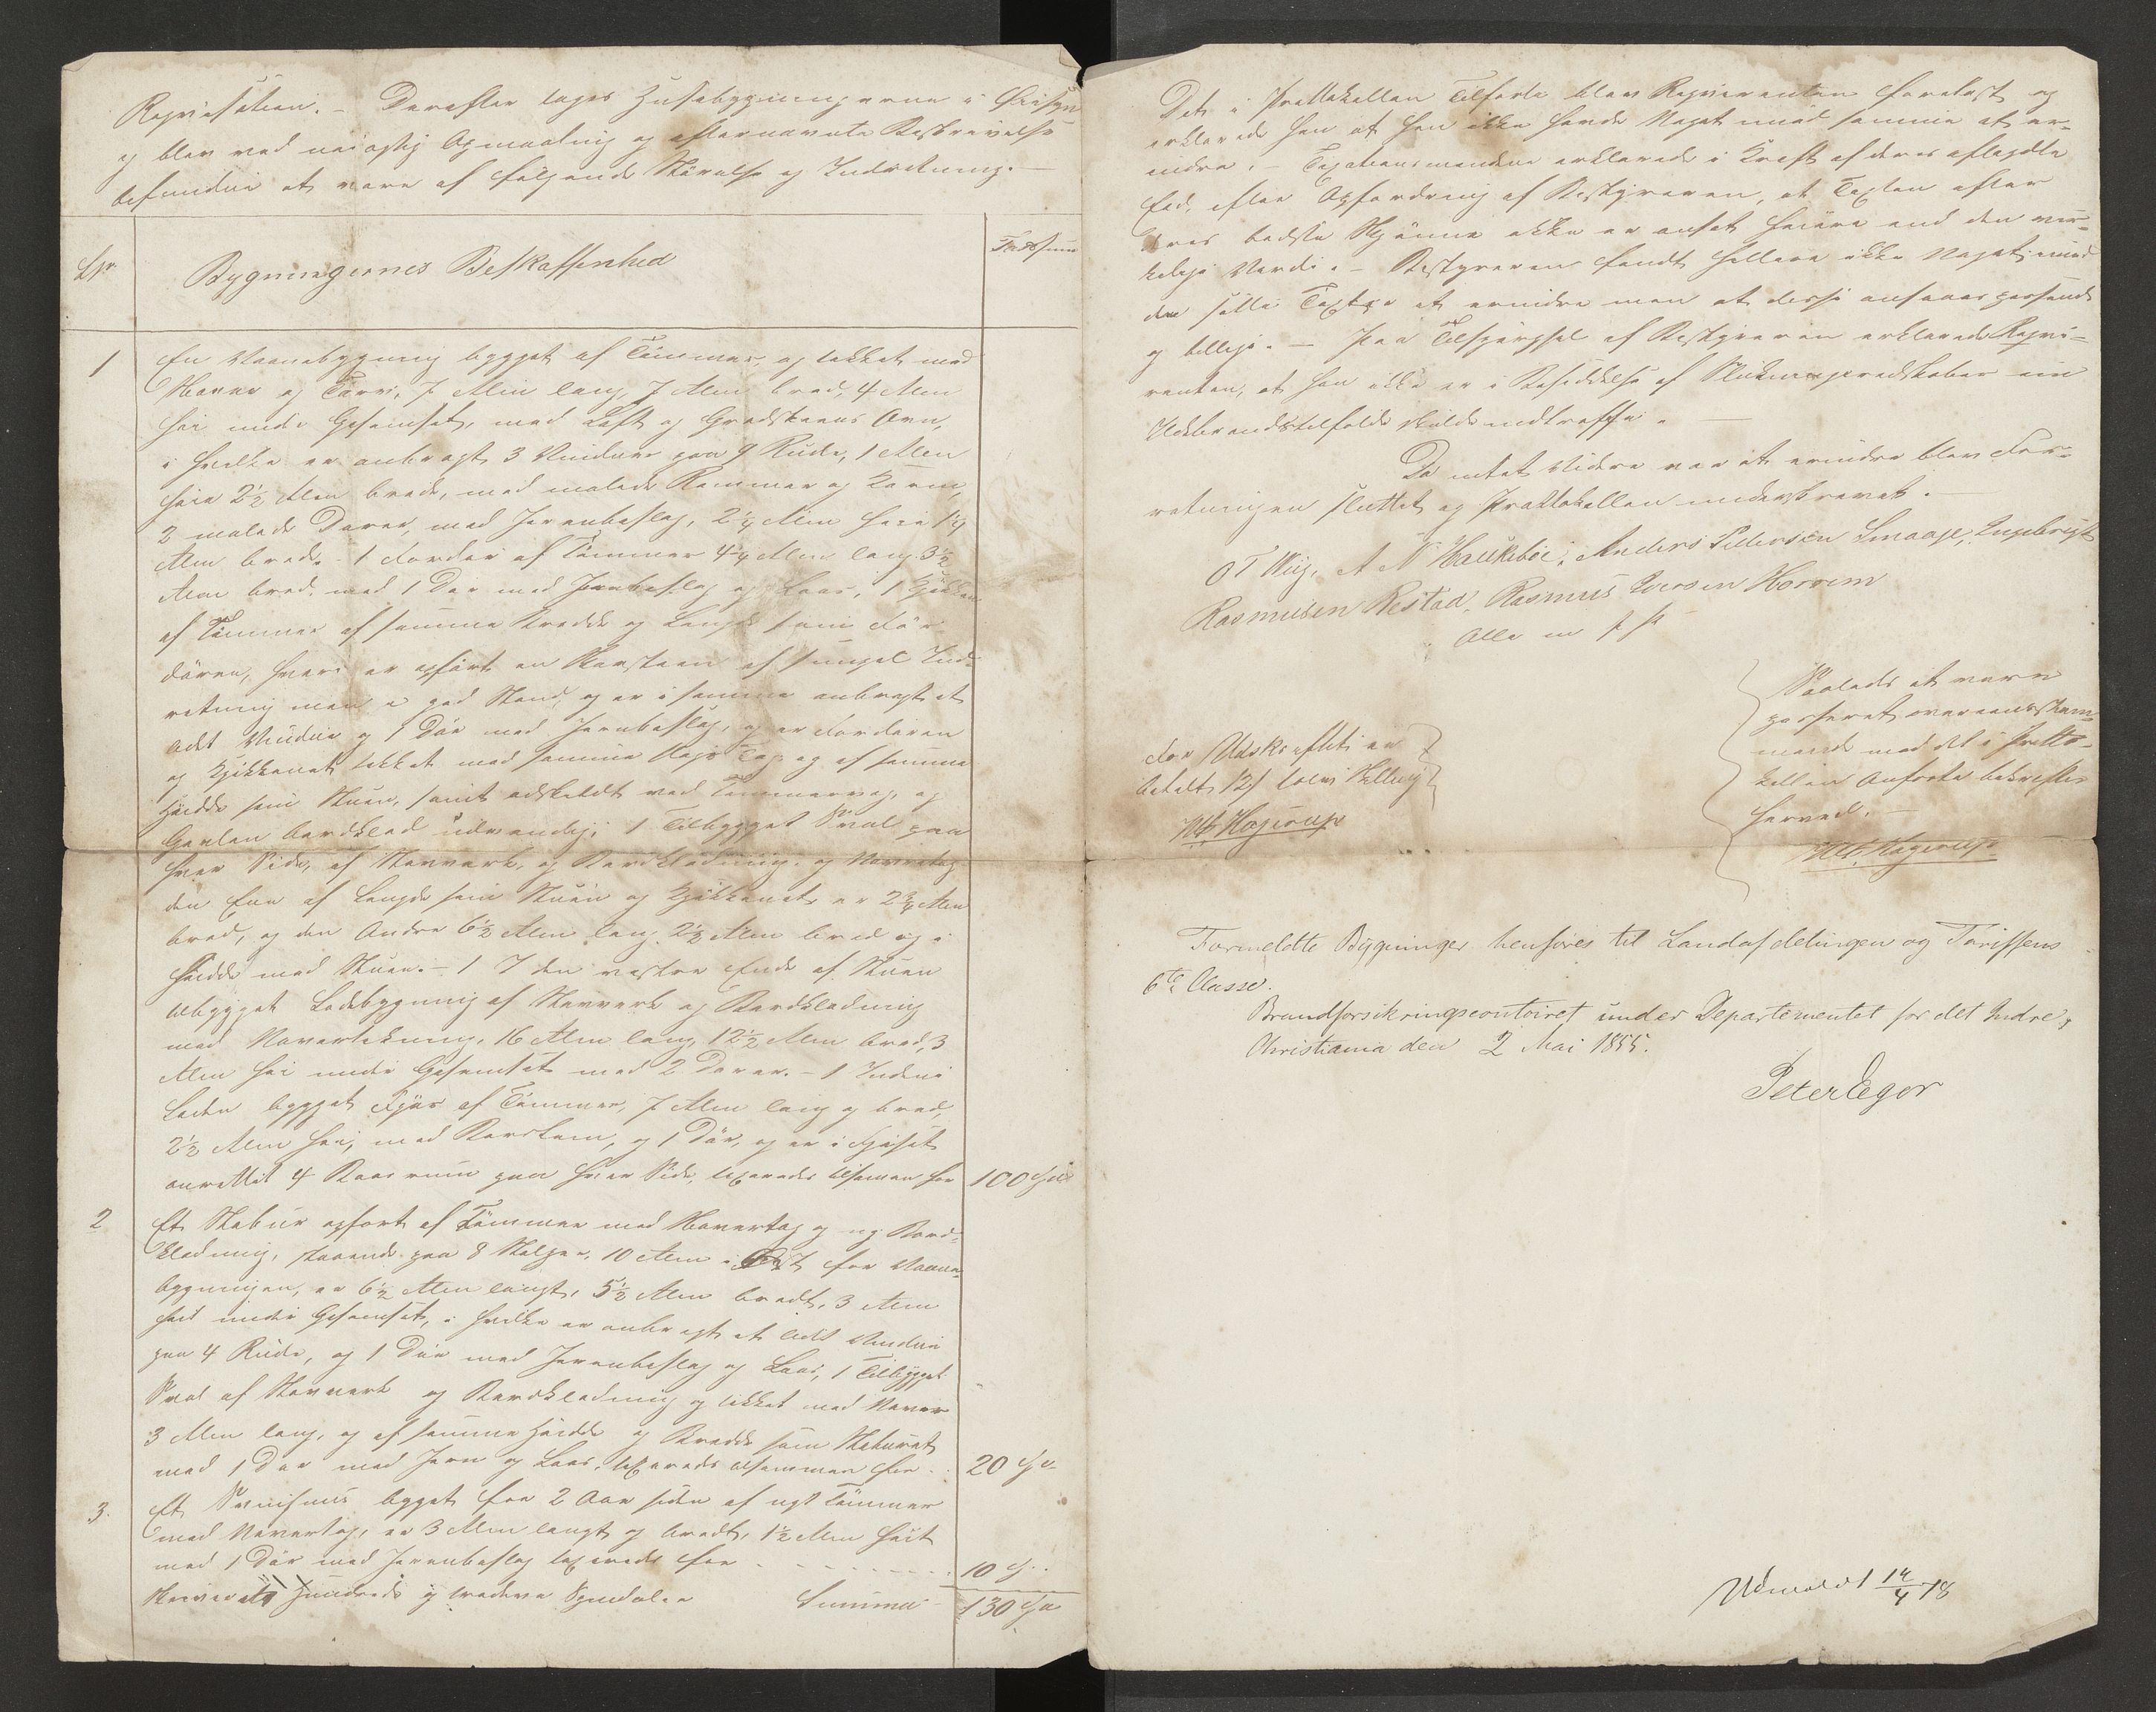 Reqvisition. – Derefter toges Huusebygningerne i Øiesyn
og blev ved nøiagtig Opmaaling og efternævnte Beskrivelse
befunden at være af følgende Størrelse og Indretning. –
No
Bygningernes Beskaffenhed
Taxtsum
1
En Vaanebygning bygget af Tømmer, og tækket med
Næver og Tørv, 7 Alen lang, 7 Alen bred, 4 Alen
høi under Gesimset, med Loft og Graasteens Ovn,
i hvilken er anbragt 3 Vinduer paa 9 Ruder, 1 Alen
høie 2½ Alen brede, med malede Rammer og Karm,
2 malede Dører, med Jernbeslag, 2¼ Alen høie 1¼
Alen brede. – 1 Fordør af Tømmer 4¼ Alen lang 3½
Alen bred, med 1 Dør med Jernbeslag og Laas, 1 Kjøkken
af Tømmer af samme Bredde og Længde som For-
døren, hvori er opført en Skorsteen af simpel Ind-
retning men i god Stand, og er i samme anbragt et
lidet Vindue og 1 Dør med Jernbeslag, og er Fordøren
og Kjøkkenet tækket med samme Slags Tag og af samme
Høide som Stuen, samt adskildt ved Tømmervæg, og
Gavlen bordklæd udvendig; 1 Tilbygget Sval paa
hver Side, af Stavværk og Bordklædning og Nævertag
den Ene af Længde som Stuen og Kjøkkenet er 2¾ Alen
bred, og den Anden 6½ Alen lang 2½ Alen bred og i
Høide med Stuen. – 1 I den vestre Ende af Stuen
tilbygget Ladebygning af Stavværk og Bordklædning
med Nævertækning, 16 Alen lang, 12½ Alen bred, 3
Alen høi under Gesimset med 2 Dører. – 1 Inden i
Laden bygget Fjøs af Tømmer, 7 Alen lang og bred,
2½ Alen høi, med og 1 Dør, og er i Fjøset
anrettet 4 Baasrum paa hver Side, taxeredes tilsammen for
100 Spd
2
Et Stabur opført af Tømmer med Nævertag og ny Bord-
klædning, staaende paa 8 Stolper, 10 Alen i Øst for Vaane-
bygningen, er 6½ Alen langt, 5½ Alen bredt, 3 Alen
høit under Gesimset, i hvilken er anbragt et lidet Vindue
paa 4 Ruder, og 1 Dør med Jernbeslag og Laas, 1 Tilbygget
Sval af Stavværk og Bordklædning og tækket med Næver
3 Alen lang, og af samme Høide og Bredde som Staburet
med 1 Dør med Jern og Laas, taxeredes tilsammen for
20 Spd
3.
Et bygget for 2 Aar siden af nyt Tømmer
med Nævertag, er 3 Alen langt og bredt, 1½ Alen høit
med 1 Dør med Jernbeslag taxeredes for
10 Sp.
Skriver Hundrede og tredeve Speciedaler
Summa
130 Spd
Det i Prottokollen Tilførte blev Reqvirenten forelæst og
erklærede han at han ikke havde Noget imod samme at er-
indre. – Taxationsmændene erklærede i Kraft af deres aflagte
Eed, efter Opfordring af Bestyreren, at Taxten efter
deres bedste Skjønne ikke er ansat høiere end den vir-
kelige Værdi. – Bestyreren fandt hellere ikke Noget imod
den satte Taxt at erindre men at disse ansaaes passende
og billige. – Paa Tilspørgsel af Bestyreren erklærede Reqvi-
renten, at han ikke er i Besiddelse af Slukningsredskaber om
Ildebrandstilfælde skulde indtræffe. –
Da intet videre var at erindre blev For-
retningen sluttet og Prottokollen underskrevet.
OT Wiig, A N Haukebøe, Anders Pettersen Smaage, Ingebrigt
Rasmusen Restad, Rasmus Iversen Horsem
Alle m f P
For Udskriften er
betalt 12 f tolv Skilling
Hagerup
Saaledes at være
passeret overeensstem-
mende med det i Protto-
kollen Anførte bekræftes
herved. –
Hagerup
Formeldte Bygninger henføres til Landafdelingen og Tariffens
6te Classe.
Brandforsikringscontoiret under Departementet for det Indre,
Christiania den 2 Mai 1855.
Peter Egor
Udmeldt 14/4 78